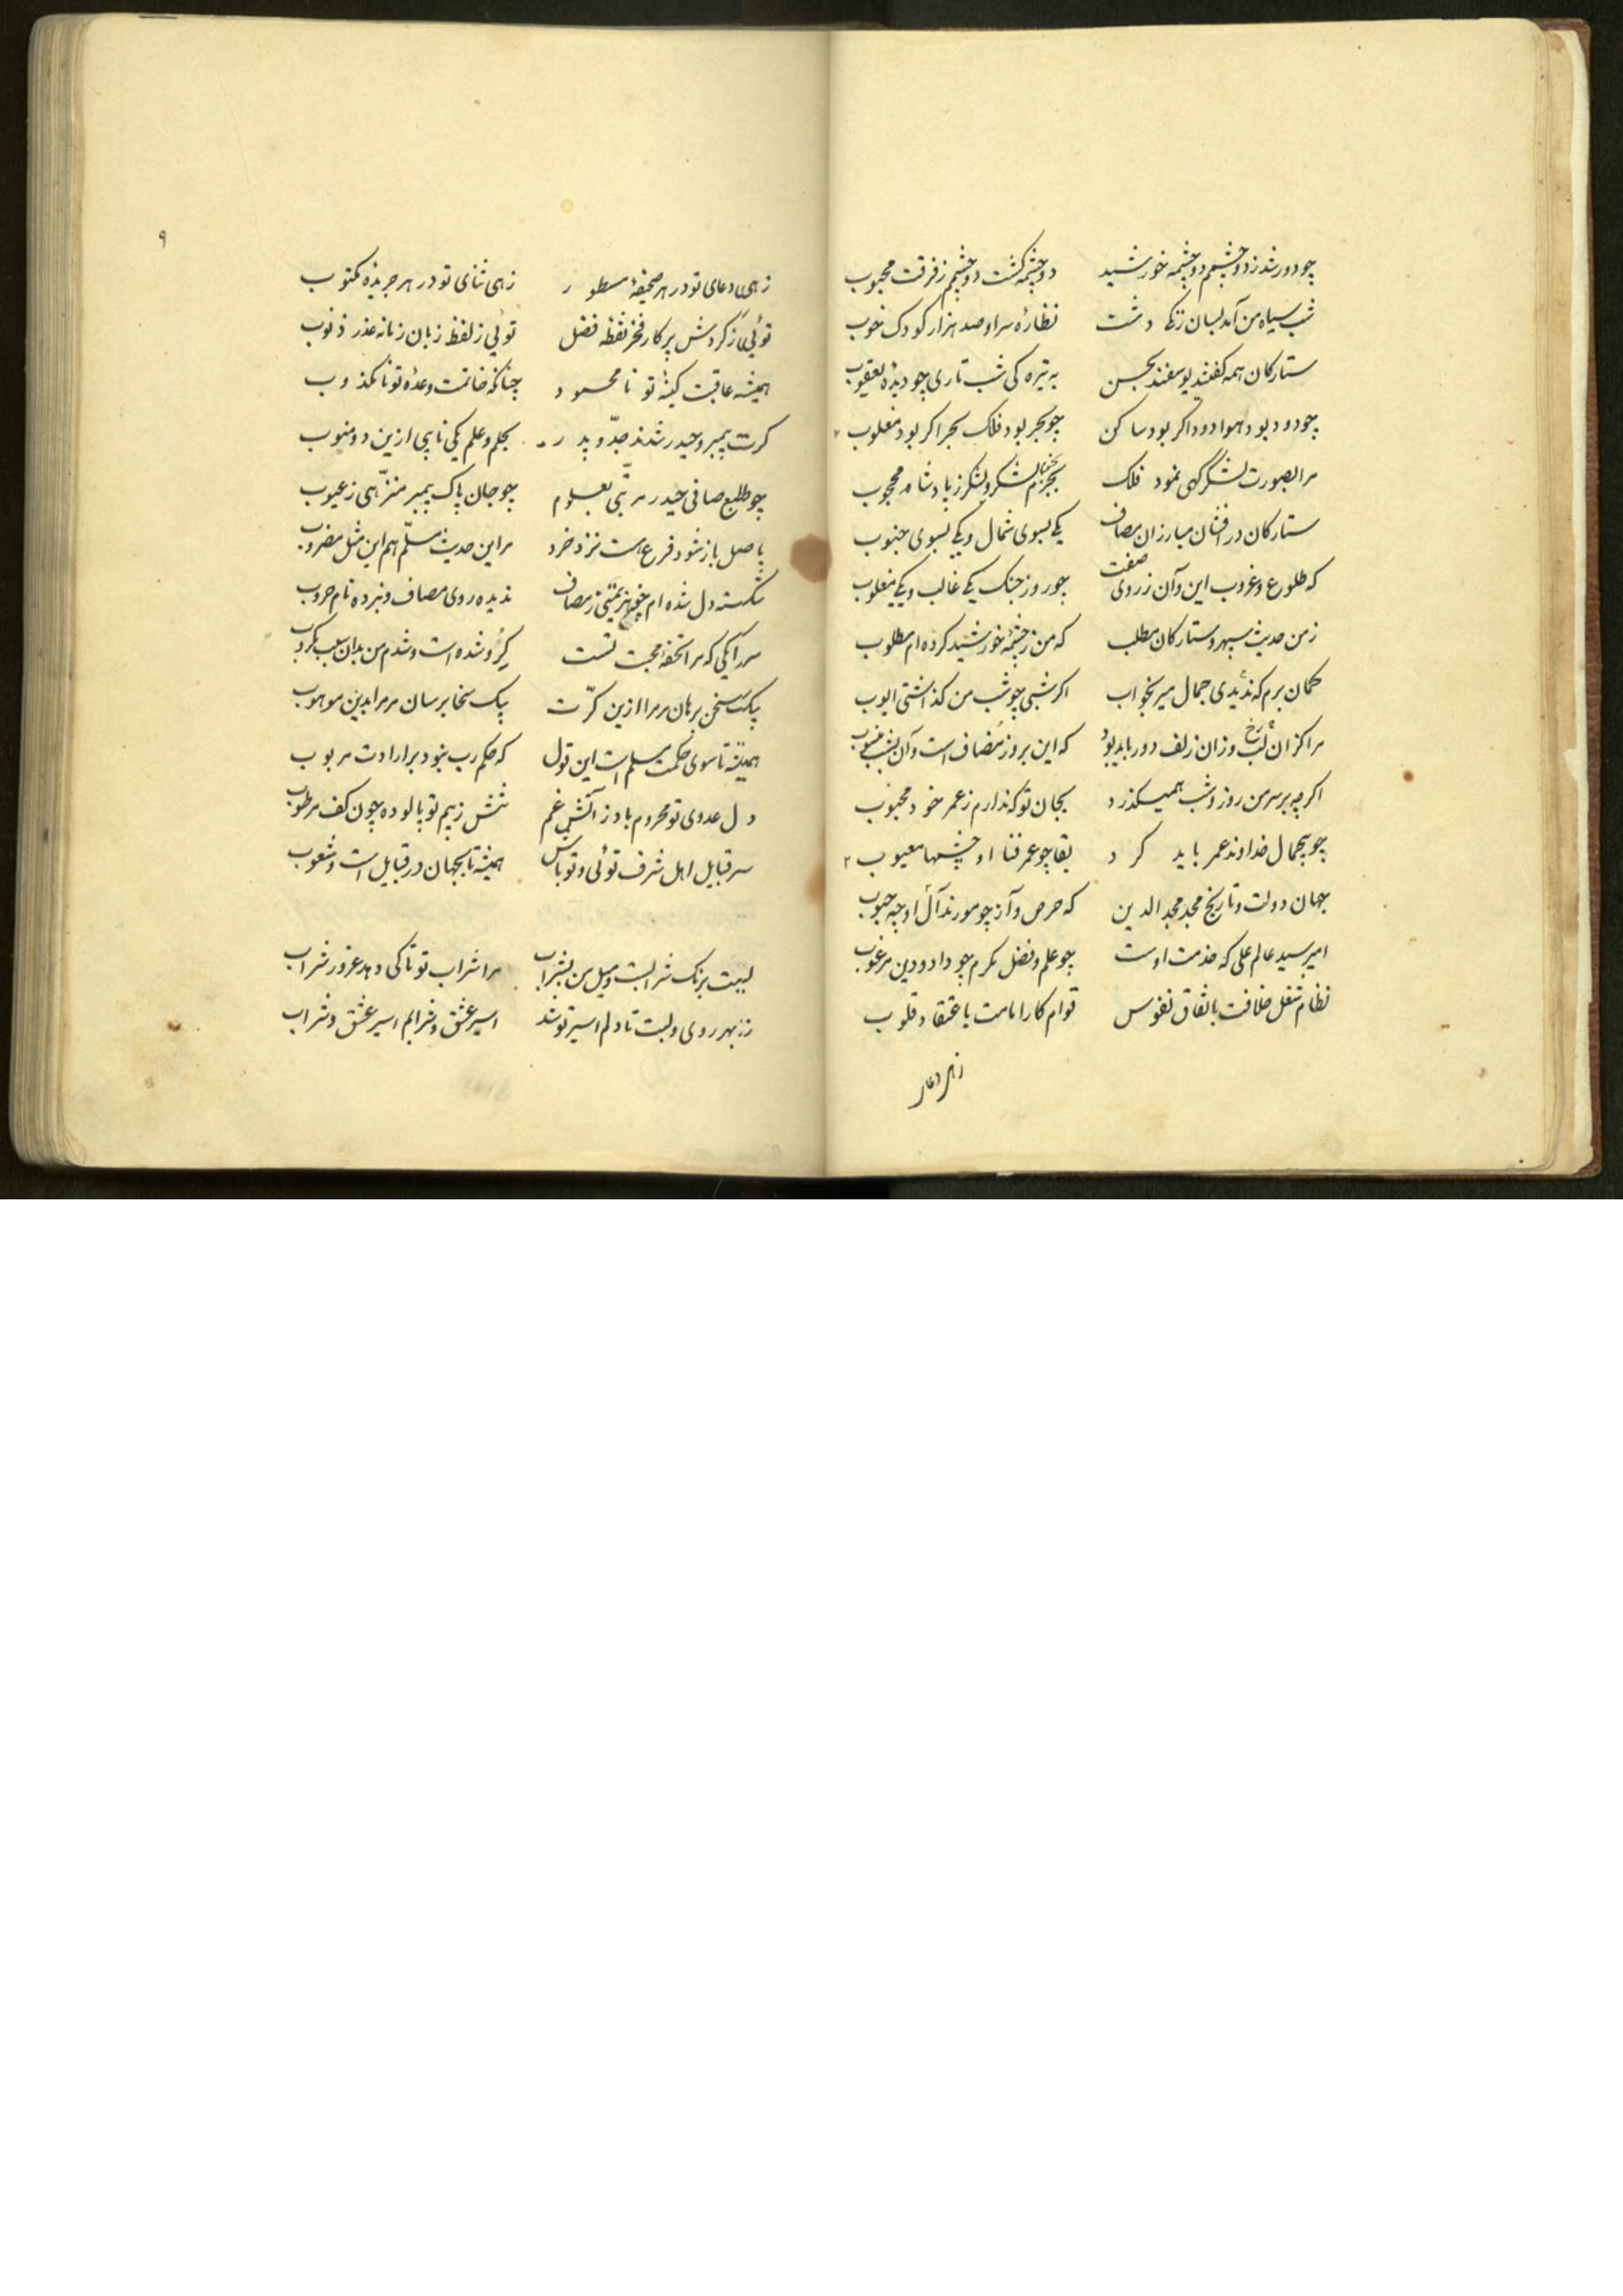 چو دور شد ز دو چشمم دو چشمه خورشید دو چشمه گشت دو چشمم ز فرقت محبوب
شب سیاه من آمد بسان زنگی دشت نظاره سر او صد هزار کودک خوب
ستارکان همه گفتند یوسفند بحسن به تیره کی شب تاری چو دیده یعقوب
چو دود بود هوا دود اکر بود ساکن چو بحر بود فلک بحر اکر بود مغلوب
مرا بصورت لشکرگهی نمود فلک بجرم لشکر و لشکر ز پادشاه محجوب
ستارکان درافشان مبارزان مصاف یکی بسوی شمال و یکی بسوی جنوب
که طلوع و غروب این و آن ز روی صفت چو روز جنک یکی غالب و یکی مغلوب
ز من حدیث سپهر و ستارکان مطلب که من ز چشمه خورشید کرده ام مطلوب
کمان برم که ندیدی جمال میر بخواب اکر شبی چو شب من کذاشتی ایوب
مرا کزان لب رخ وزان زلف دور باید بود که این بروز مضاف است و آن بشب منسوب
اکرچه بر سر من روز و شب همیکذرد بجان تو که ندارم ز عمر خود محبوب
چو بیجمال خداوند عمر باید کرد بقا چو عمر فنا او چشمها معیوب
جهان دولت و تاریخ مجد مجدالدین که حرص و آز چو مورند آل او چه حبوب
امیر سید عالم علی که خدمت اوست چو علم و فضل مکرم چو داد و دین مرغوب
نظام شغل خلافت باتفاق نفوس قوام کار امامت باعتقاد قلوب
زهی دعای
۹
زهی دعای تو در هر صحیفه مسطور زهی ثنای تو در هر جریده مکتوب
توئی ز کردش پرکار فخر نقطه فضل توئی ز لفظ زبان زمانه عذر ذنوب
همیشه عاقبت کینه تو نامحمود چنانکه خاتمت وعده تو نامکذوب
کرت پیمبر و حیدر شدند جد و پدر بحلم و علم یکی نایبی ازین دو منوب
چو طبع صافی حیدر مربی بعلوم چو جان پاک پیمبر منزهی ز عیوب
باصل باز شود فرع هست نزد خرد مر این حدیث مسلم هم این مثل مضروب
شکسته دل شده ام هزیمتی ز مصاف ندیده روی مصاف و نبرده نام حروب
سرآیکی که مرا تحفه محبت تست کرو شده است و شدم من بدان سبب مکروب
بیک سخن برهان مر مرا ازین کرت بیک سخا برسان مر مرا بدین موهوب
همیشه تا سوی حکمت مسلم است این قول که حکم رب نبود بر ارادت مربوب
دل عدوی تو محروم باد ز آتش غم تنش ز بیم تو پالوده چون کف مرطوب
سر قبایل اهل شرف توئی و تو باش همیشه تا بجهان در قبایل است و شعوب
لبت برنک شرابست و میل من بشراب مرا شراب تو تا کی دهد غرور شراب
ز بهر روی و لبت تا دلم اسیر تو شد اسیر عشق و شرابم اسیر عشق و شراب